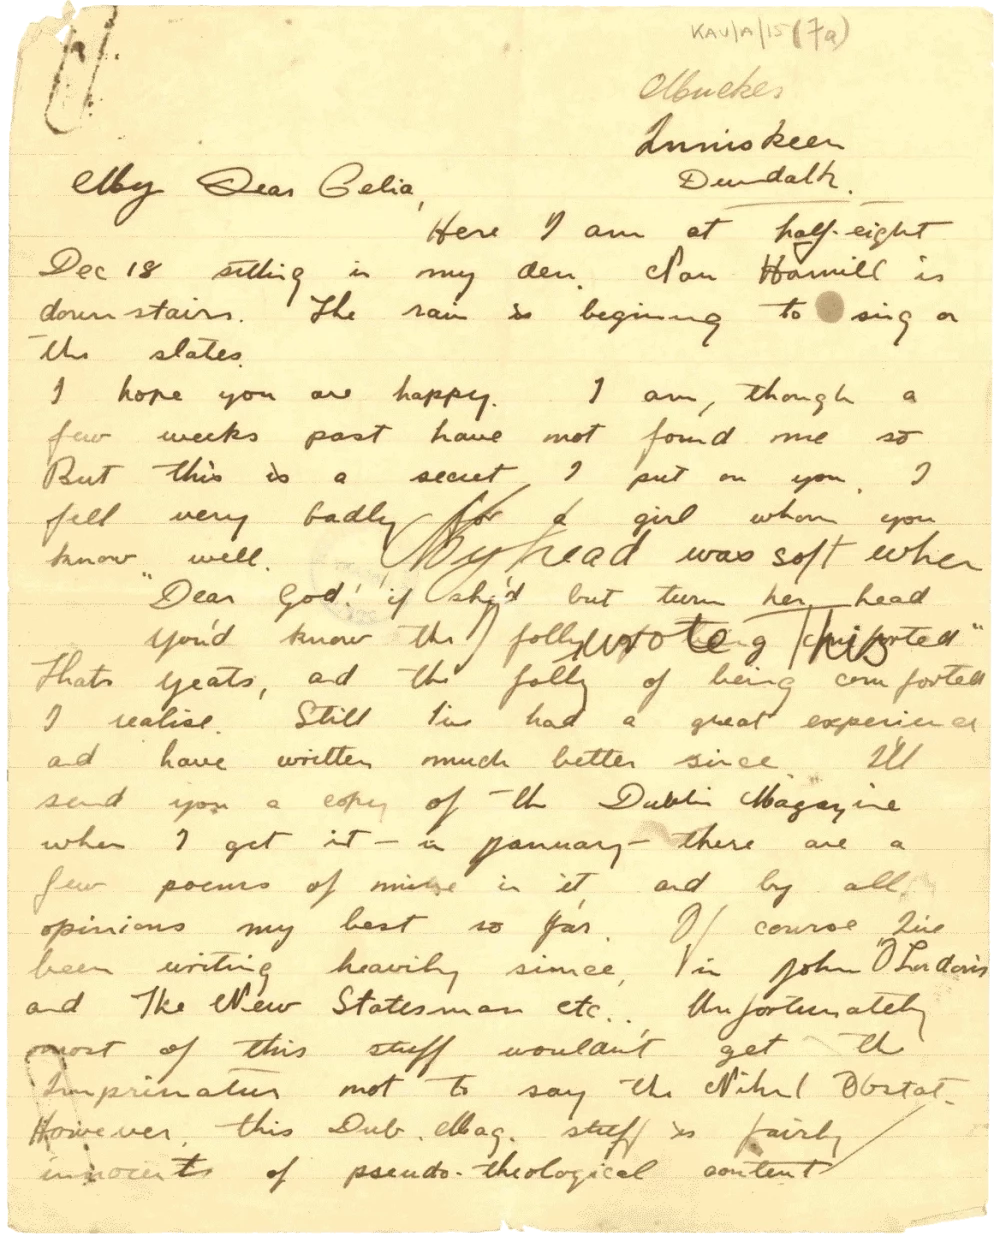 KAV/A/15 (7a)
Mucker
Inniskeen
Dundalk.
My Dear Celia,
Here I am at half-eight
Dec 18 sitting in my den. Nan Hamill is
downstairs. The rain is begining to sing on
the slates.
I hope you are happy. I am, though a
few weeks past have not found me so
But this is a secret I put on you. I
fell very badly for a girl whom you
know well. My head was soft when
"Dear God! if she'd but turn her head
I wrote this
You'd know the folly of being comforted"
Thats Yeats, and the folly of being comforted
I realise. Still I've had a great experience
and have written much better since. I'll
send you a copy of the Dublin Magazine
when I get it – in January – there are a
few poems of mine in it and by all
opinions my best so far. Of course I've
been writing heavily since, in John O'Londons
and The New Statesman etc.. Unfortunately
most of this stuff wouldn't get the
Imprimatur not to say the Nihil Obstat.
However, this Dub. Mag. stuff is fairly
innocent of pseudo-theological content